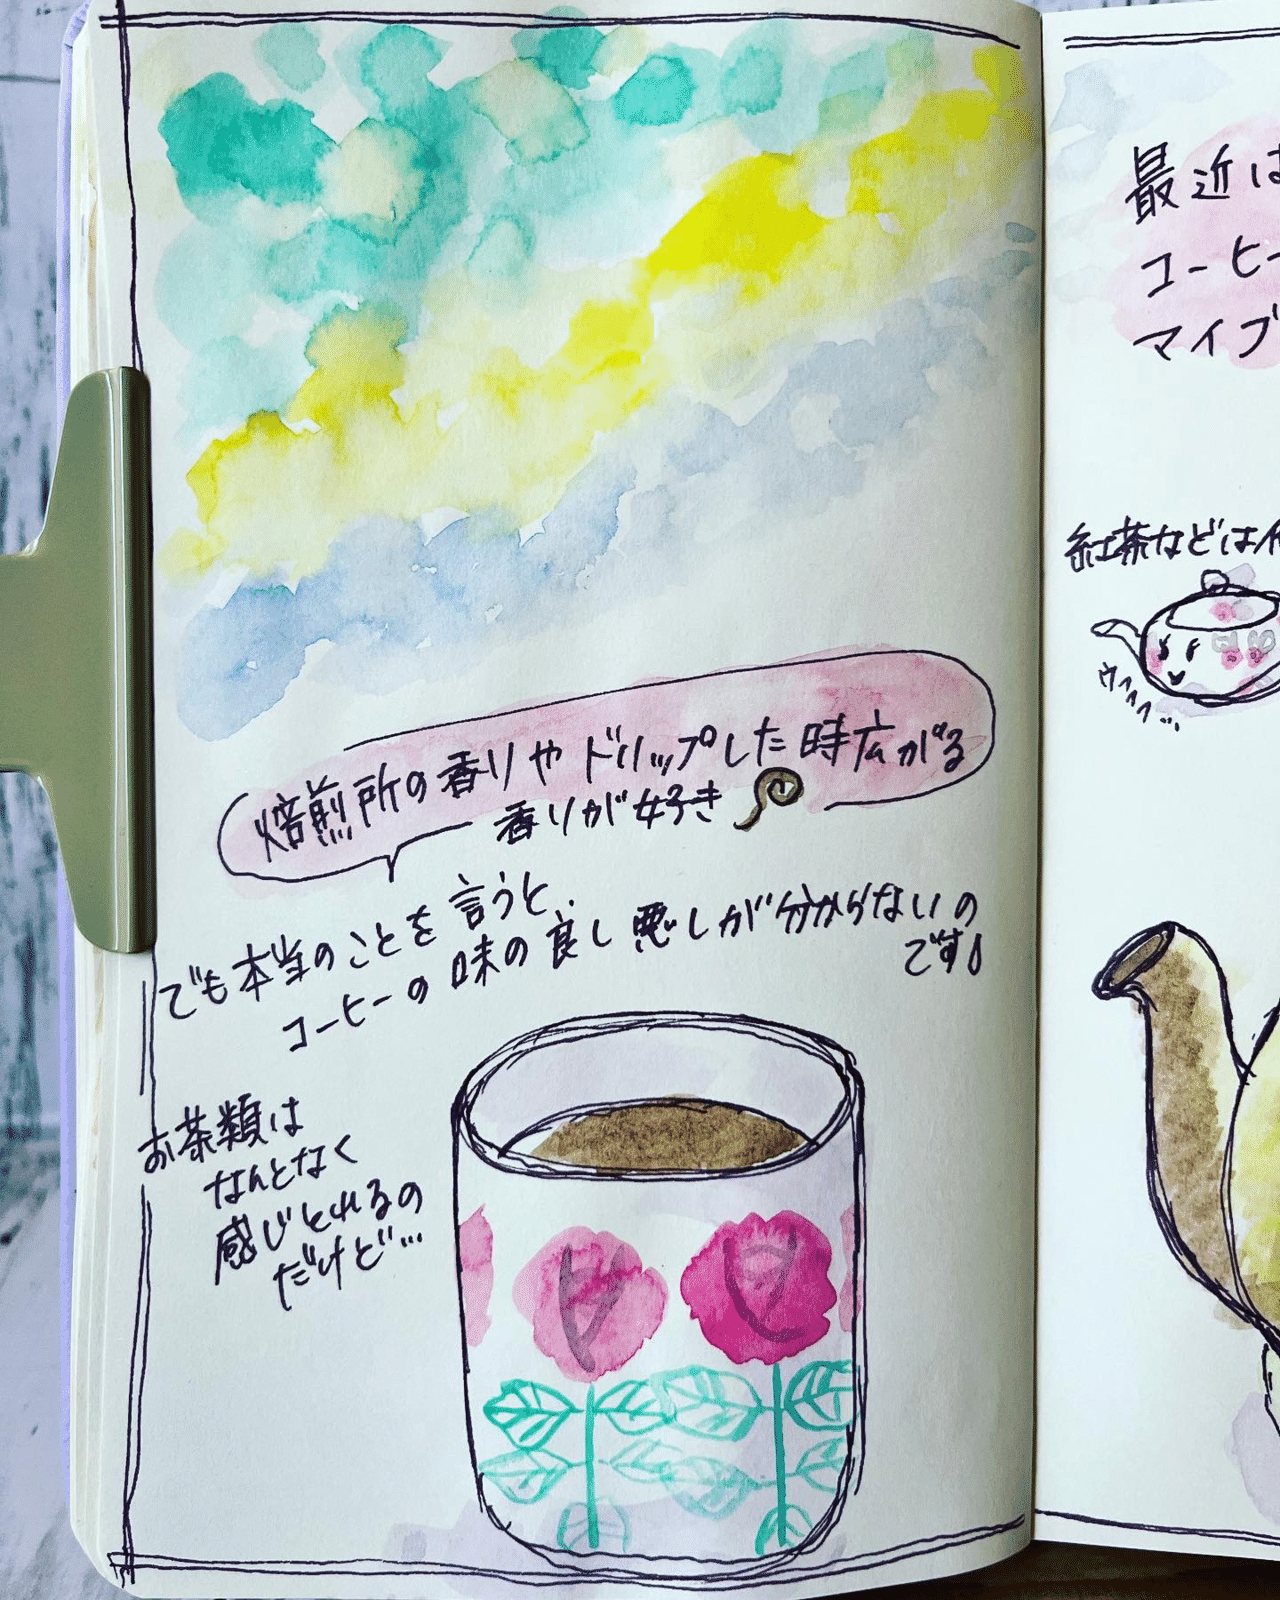 焙煎所の香りやドリップした時広がる
香りが好き
でも本当のことを言うと、
コーヒーの味の良し悪しが分からないの
です
お茶類は
なんとなく
感じとれるの
だけど…
最近は
コーヒー
マイブ
紅茶などは
ウヘヘヘ…